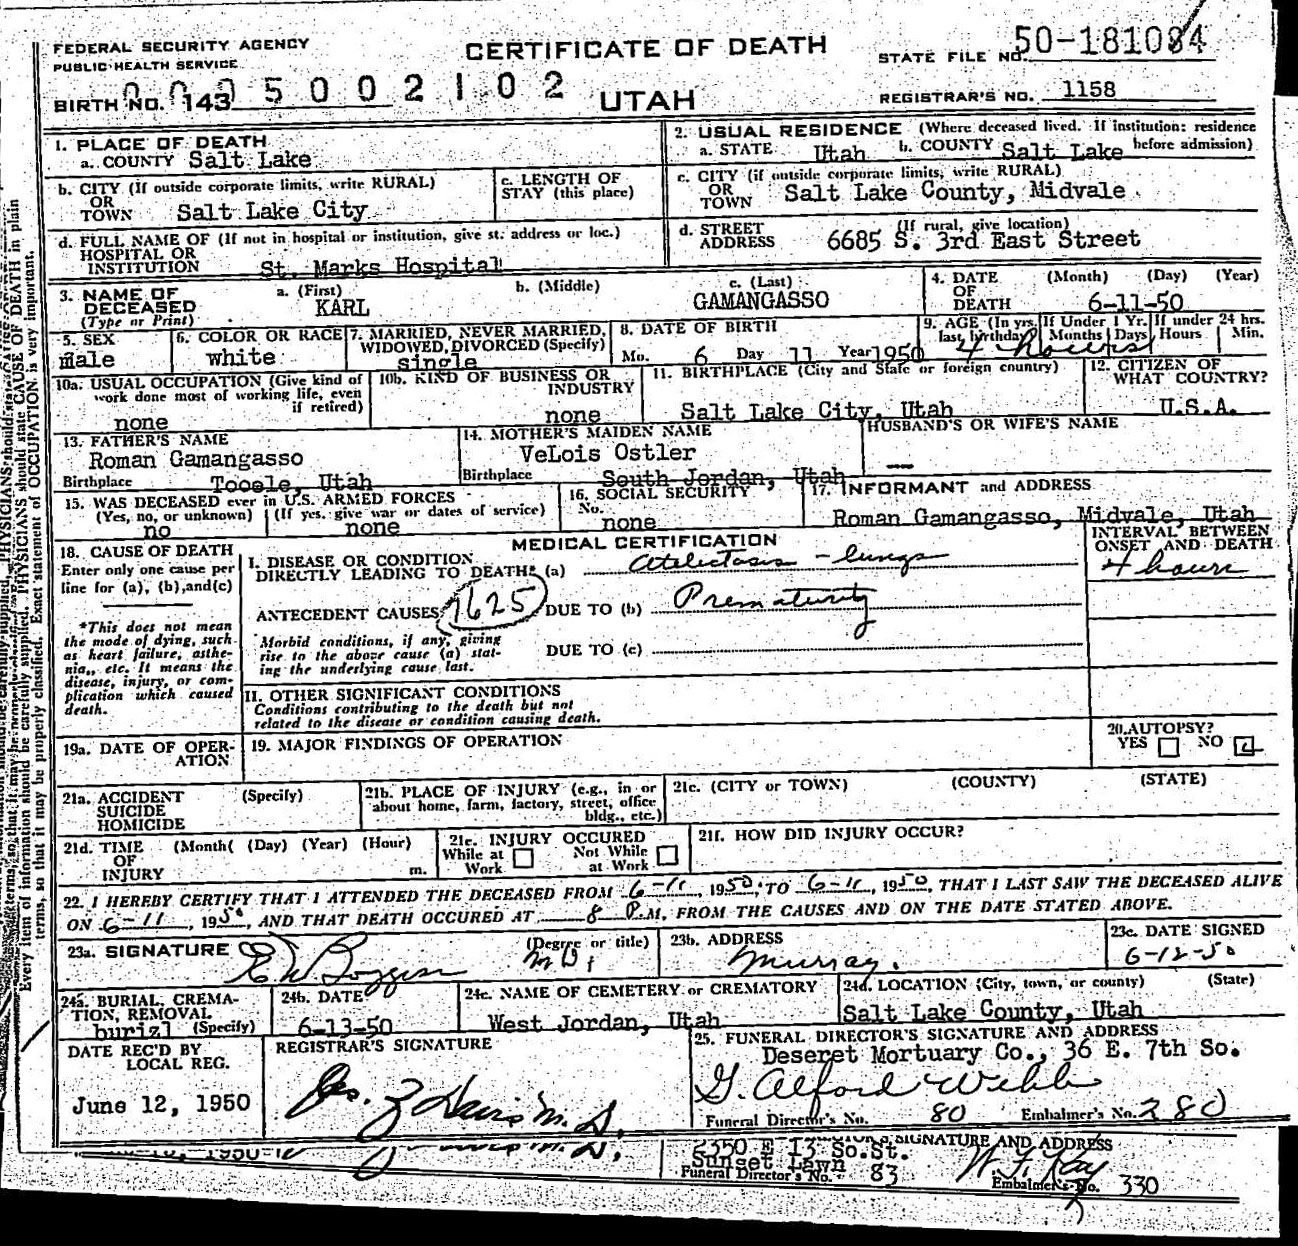 FEDERAL SECURITY AGENCY
PUBLIC HEALTH SERVICE
CERTIFICATE OF DEATH
STATE FILE NO. 50-181084
BIRTH NO. 143
5002102
UTAH
REGISTRAR'S NO. 1158
1. PLACE OF DEATH
a. COUNTY Salt Lake
2. USUAL RESIDENCE (Where deceased lived. If institution: residence before admission)
a. STATE Utah b. COUNTY Salt Lake
b. CITY (If outside corporate limits, write RURAL)
OR
TOWN Salt Lake City
c. LENGTH OF
STAY (this place)
c. CITY (if outside corporate limits, write RURAL)
OR
TOWN Salt Lake County, Midvale
d. FULL NAME OF (If not in hospital or institution, give st. address or loc.)
HOSPITAL OR
INSTITUTION St. Marks Hospital
d. STREET
ADDRESS
(If rural, give location)
6685 S. 3rd East Street
3. NAME OF
DECEASED
(Type or Print)
a. (First)
KARL
b. (Middle)
c. (Last)
GAMANGASSO
4. DATE
OF
DEATH
(Month) (Day) (Year)
6-11-50
5. SEX
male
6. COLOR OR RACE
white
7. MARRIED, NEVER MARRIED,
WIDOWED, DIVORCED (Specify)
single
8. DATE OF BIRTH
Mo. 6 Day 11 Year 1950
9. AGE (In yrs. last birthday)
If Under 1 Yr. Months Days
If under 24 hrs. Hours Min.
4 hours
10a. USUAL OCCUPATION (Give kind of
work done most of working life, even
if retired)
none
10b. KIND OF BUSINESS OR
INDUSTRY
none
11. BIRTHPLACE (City and State or foreign country)
Salt Lake City, Utah
12. CITIZEN OF
WHAT COUNTRY?
U.S.A.
13. FATHER'S NAME
Roman Gamangasso
Birthplace Tooele, Utah
14. MOTHER'S MAIDEN NAME
VeLois Ostler
Birthplace South Jordan, Utah
HUSBAND'S OR WIFE'S NAME
—
15. WAS DECEASED ever in U.S. ARMED FORCES
(Yes, no, or unknown) (If yes, give war or dates of service)
no none
16. SOCIAL SECURITY
No.
none
17. INFORMANT and ADDRESS
Roman Gamangasso, Midvale, Utah
18. CAUSE OF DEATH
Enter only one cause per
line for (a), (b), and (c)
*This does not mean
the mode of dying, such
as heart failure, asthe-
nia, etc. It means the
disease, injury, or com-
plication which caused
death.
MEDICAL CERTIFICATION
INTERVAL BETWEEN
ONSET AND DEATH
I. DISEASE OR CONDITION
DIRECTLY LEADING TO DEATH* (a) Atelectasis - lungs
4 hours
ANTECEDENT CAUSES 7625 DUE TO (b) Prematurity
Morbid conditions, if any, giving
rise to the above cause (a) stat-
ing the underlying cause last.
DUE TO (c)
II. OTHER SIGNIFICANT CONDITIONS
Conditions contributing to the death but not
related to the disease or condition causing death.
19a. DATE OF OPER-
ATION
19. MAJOR FINDINGS OF OPERATION
20. AUTOPSY?
YES NO
21a. ACCIDENT
SUICIDE
HOMICIDE
(Specify)
21b. PLACE OF INJURY (e.g., in or
about home, farm, factory, street, office
bldg., etc.)
21c. (CITY or TOWN) (COUNTY) (STATE)
21d. TIME
OF
INJURY
(Month( (Day) (Year) (Hour)
m.
21e. INJURY OCCURED
While at
Work
Not While
at Work
21f. HOW DID INJURY OCCUR?
22. I HEREBY CERTIFY THAT I ATTENDED THE DECEASED FROM 6-11, 1950, TO 6-11, 1950, THAT I LAST SAW THE DECEASED ALIVE
ON 6-11, 1950, AND THAT DEATH OCCURED AT 8 P.M, FROM THE CAUSES AND ON THE DATE STATED ABOVE.
23a. SIGNATURE
(Degree or title)
M D.
23b. ADDRESS
Murray.
23c. DATE SIGNED
6-12-50
24a. BURIAL, CREMA-
TION, REMOVAL
(Specify)
burizl
24b. DATE
6-13-50
24c. NAME OF CEMETERY or CREMATORY
West Jordan, Utah
24d. LOCATION (City, town, or county) (State)
Salt Lake County, Utah
DATE REC'D BY
LOCAL REG.
June 12, 1950
REGISTRAR'S SIGNATURE
25. FUNERAL DIRECTOR'S SIGNATURE AND ADDRESS
Deseret Mortuary Co., 36 E. 7th So.
G. Alford Webb
Funeral Director's No. 80 Embalmer's No. 280
SIGNATURE AND ADDRESS
1950
2350 E 13 So.St.
Sunset Lawn
Funeral Director's No. 83
Embalmer's No. 330